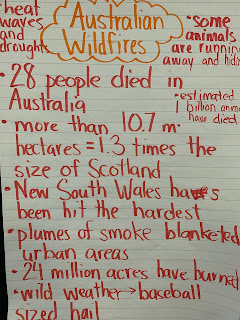 heat
waves
and
droughts
Australian
Wildfires
• some
animals
are running
away and hidin
• 28 people died in
Australia
• estimated
1 billion anim
have died
• more than 10.7 m.
hectares = 1.3 times the
size of Scotland
• New South Wales has
been hit the hardest
• plumes of smoke blanketed
urban areas
• 24 million acres have burned
• wild weather → baseball
sized hail